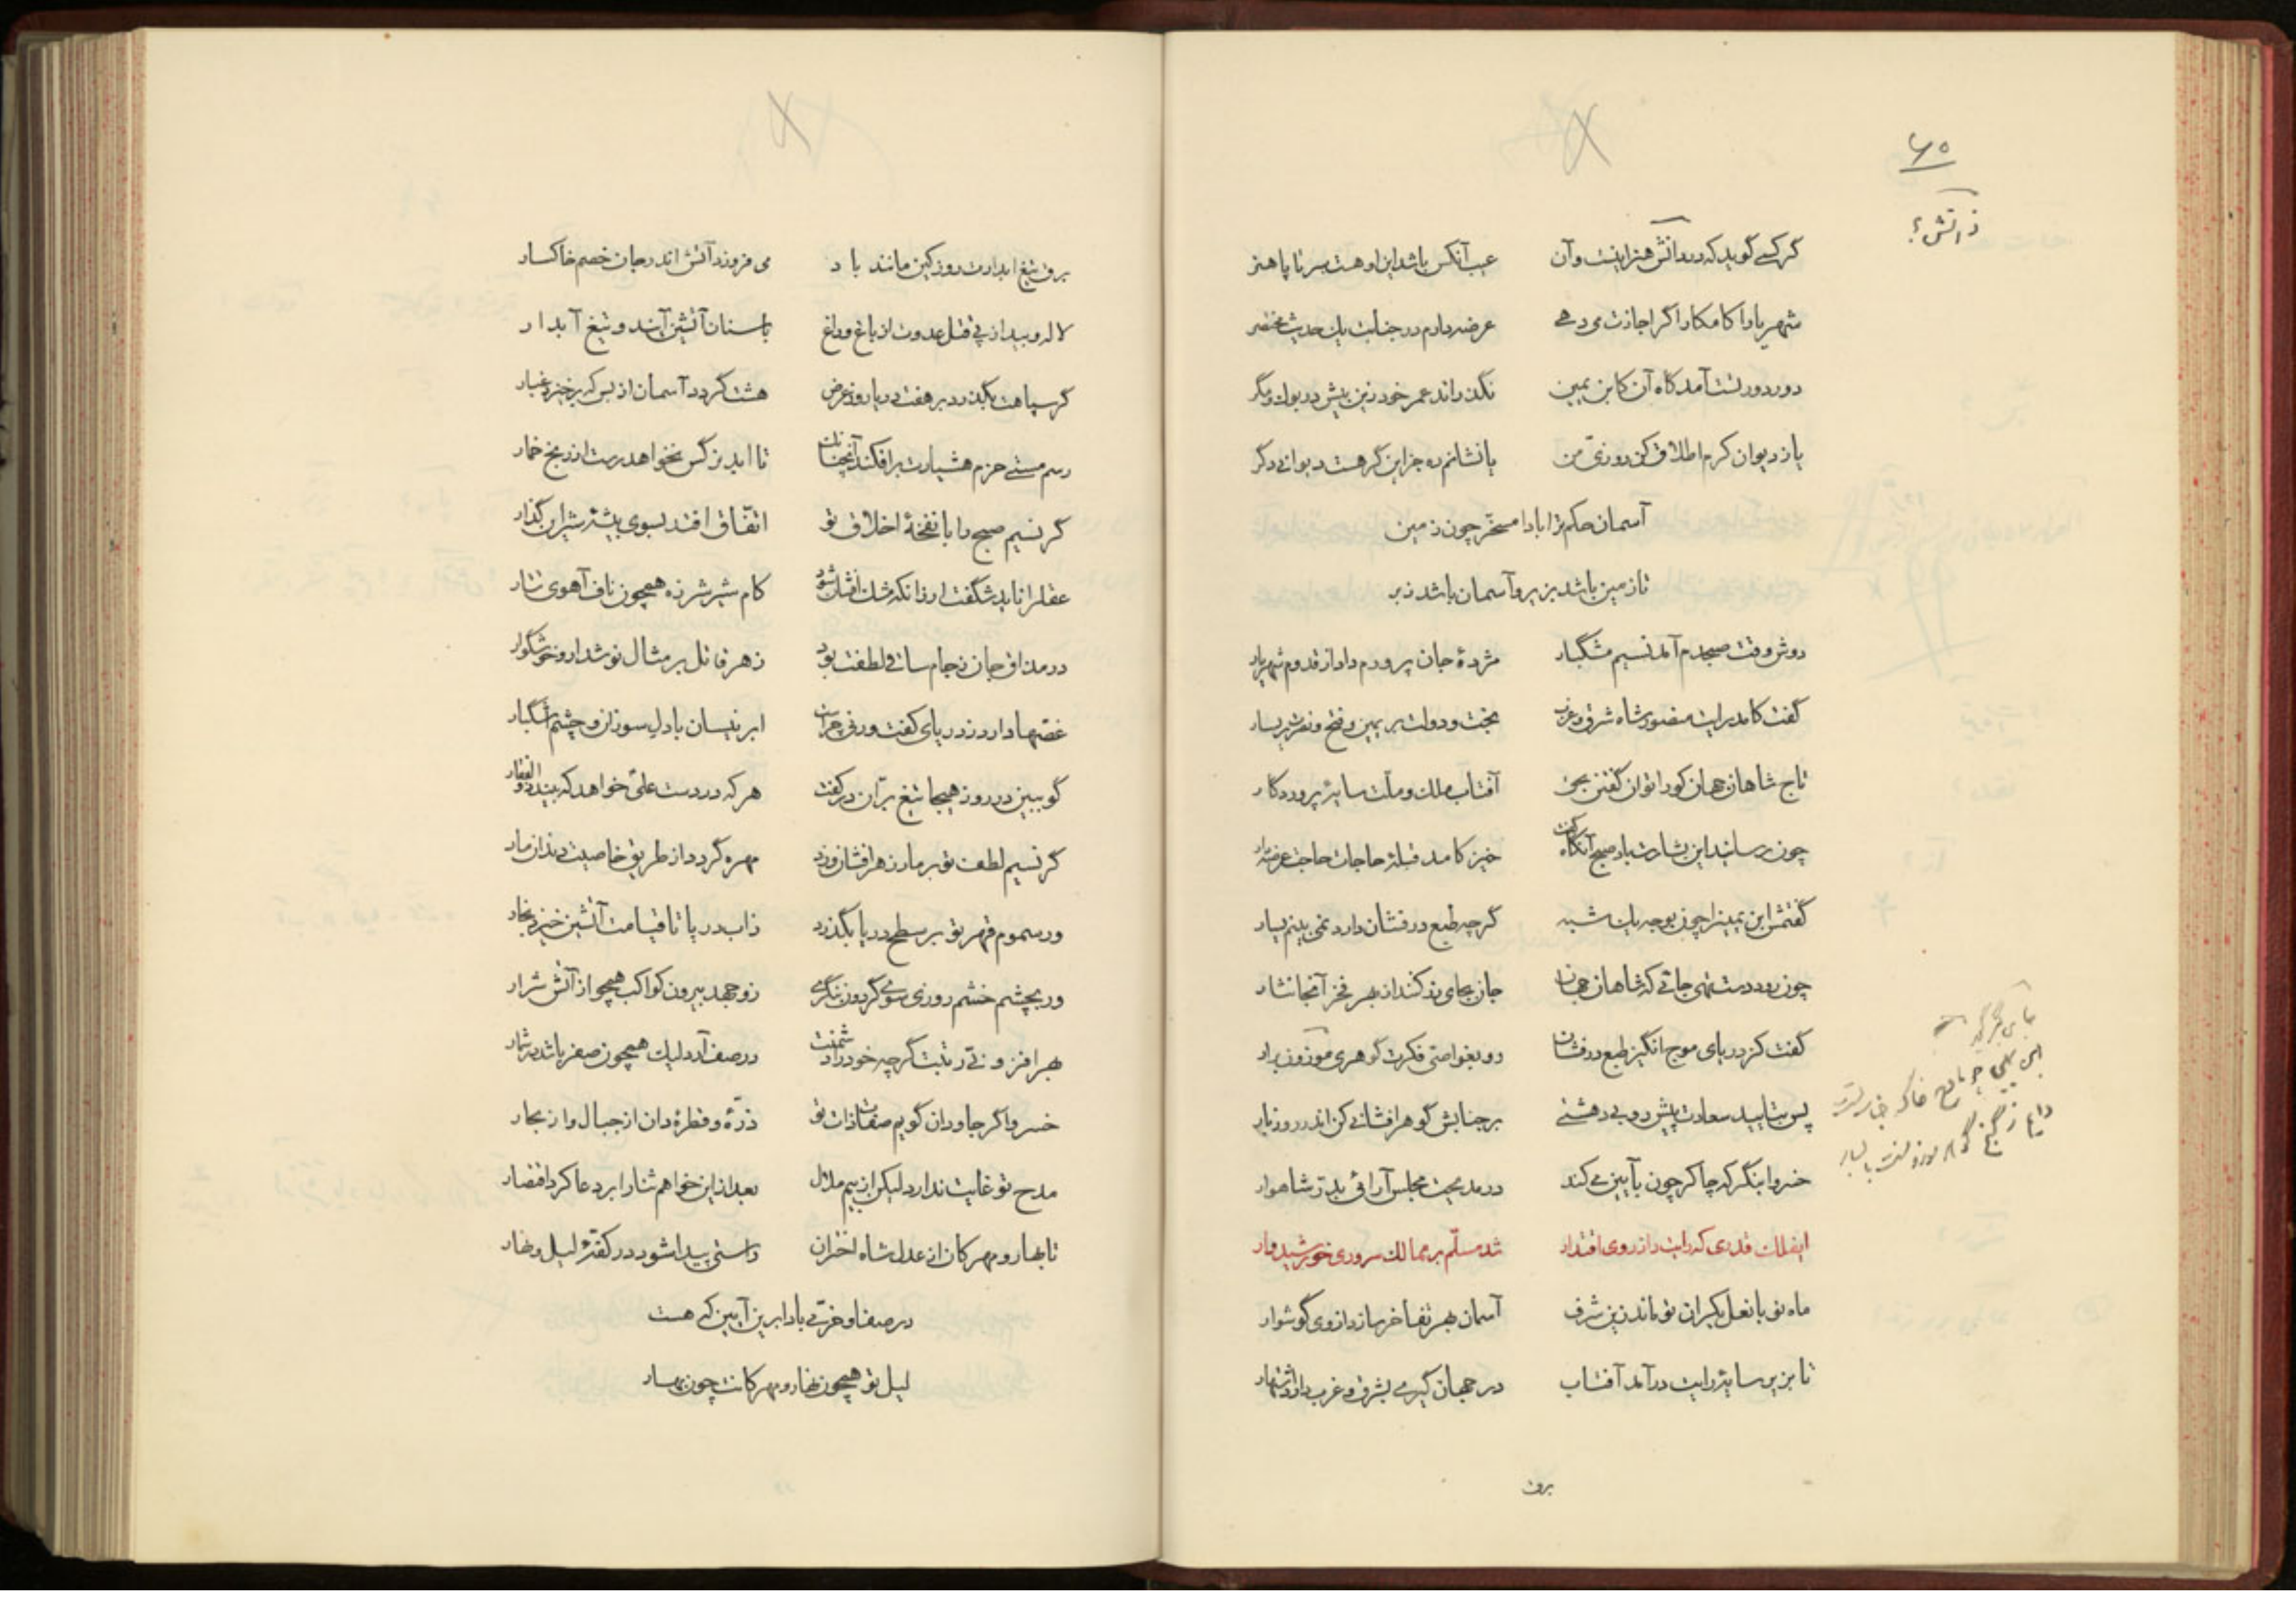 ۶۵
ز آتش؟
گر کسی گوید که در ذاتش هنر اینست و آن عیب آنکس باشد این او هست سر تا پا هنر
شهریارا کامکارا گر اجازت می دهی عرضه دارم در جنابت یک حدیث مختصر
دور دور تست آمد گاه آن کابن یمین نگذراند عمر خود زین بیش در بوک و مگر
یا ز دیوان کرم اطلاق کن روزی من یا نشانم ده جز این گر هست دیوانی دگر
آسمان حکم ترا بادا مسخر چون زمین
تا زمین باشد بزیر و آسمان باشد زبر
دوش وقت صبحدم آمد نسیم مشگبار مژدهٔ جان پرورم داد از قدوم شهریار
گفت کامد رایت منصور شاه شرق و غرب بخت و دولت بر یمین و فتح و نصرت بر یسار
تاج شاهان جهان کو را توان گفتن بحق آفتاب ملک و ملت سایهٔ پروردگار
چون رسانید این بشارت باد صبح آنگاه گفت خیز کامد قبلهٔ حاجات حاجت عرضه دار
گفتمش ابن یمین را چون بوجه پای شبه گرچه طبع درفشان دارد نمی بینم یسار
چون رود دست تهی جائی که شاهان جهان جان بجای زر کنند از بهر فخر آنجا نثار
گفت کز دریای موج انگیز طبع درفشان رو بغواصی فکرت گوهری موزون برار
پس بتایید سعادت پیش رو بی دهشتی بر جنابش گوهر افشانی کن اندر روز بار
خسروا بنگر که چاکر چون بآیین می کند در مدیحت مجلس آرائی بدرّ شاهوار
ایفلک قدری که رایت را ز روی اقتدار شد مسلّم بر ممالک سروری خورشیدوار
ماه نو با نعل یکران تو ماند زین شرف آسمان بهر تفاخر سازد از وی گوشوار
تا بزیر سایهٔ رایت درآمد آفتاب در جهان گیری بشرق و غرب دارد اشتهار
برق
برق تیغ ابدارت روز کین مانند باد می فروزد آتش اندر جان خصم خاکسار
لاله و بید از پی قتل عدوت از باغ و راغ با سنان آتشین آیند و تیغ آبدار
گر سپاهت بگذرد بر هفت دریا روز عرض هشت گردد آسمان از بس که برخیزد غبار
رسم مستی حزم هشیارت برافکند آنچنانک تا ابد نرگس نخواهد رست از رنج خمار
گر نسیم صبح را با نفخهٔ اخلاق تو اتفاق افتد بسوی بیشهٔ شیران گذار
عقل را ناید شگفت ار زانکه مشک افشان شود کام شیر شرزه همچون ناف آهوی تتار
در مذاق جان ز جام ساقی لطفت بود زهر قاتل بر مثال نوشدارو خوشگوار
غصّها دارد ز دریای کفت ور نی چراست ابر نیسان با دل سوزان و چشم اشگبار
گو ببین در روز هیجا تیغ برّان در کفت هر که در دست علی خواهد که بیند ذوالفقار
گر نسیم لطف تو بر مار زهر افشان وزد مهره گردد از طریق خاصیت دندان مار
ور سموم قهر تو بر سطح دریا بگذرد ز آب دریا تا قیامت آتشین خیزد بخار
ور بچشم خشم روزی سوی گردون بنگری زو جهد بیرون کواکب همچو از آتش شرار
بهر افزونی رتبت گرچه خود را دشمنت در صف آرد لیک همچون صفر باشد در شمار
خسروا گر جاودان گویم صفات ذات تو ذرّهٔ و قطرهٔ دان از جبال و از بحار
مدح تو غایت ندارد لیکن از بیم ملال بعد از این خواهم ثنا را بر دعا کرد اقتصار
تا بهار و مهرکان از عدل شاه اختران راستی پیدا شود در کفّهٔ لیل و نهار
در صفا و خرّمی بادا برین آیین که هست
لیل تو همچون نهار و مهرکانت چون بهار